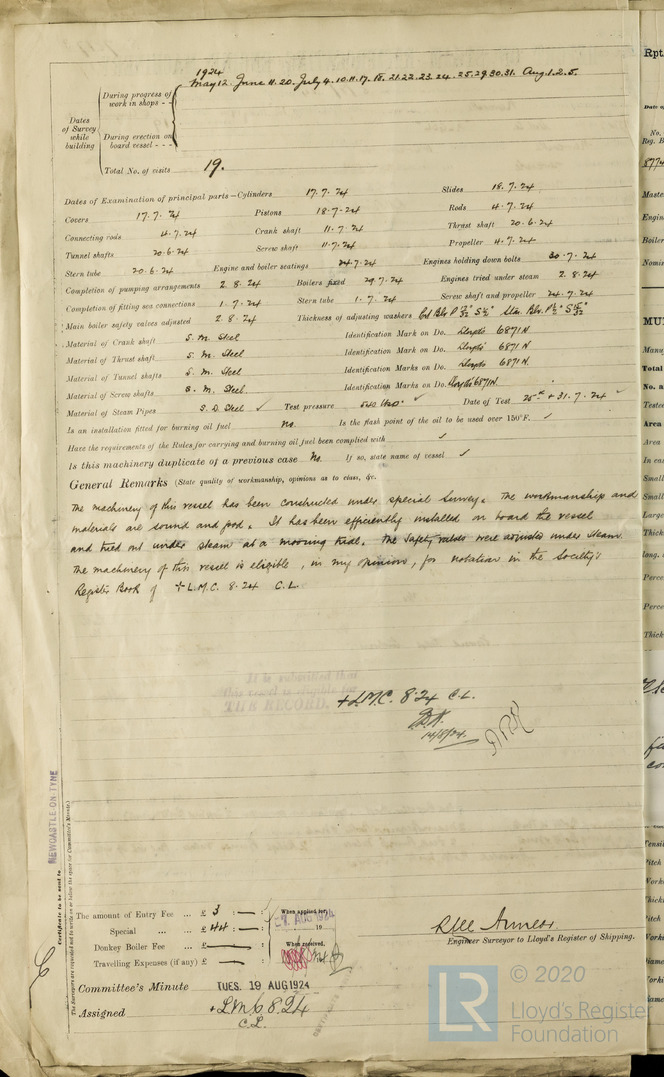 1924
May 12. June 11. 20. July 4. 10. 11. 17. 18. 21. 22. 23. 24. 25. 29. 30. 31. Aug. 1. 2. 5.
Dates of Survey while building
During progress of work in shops - -
During erection on board vessel - - -
Total No. of visits 19.
Dates of Examination of principal parts—Cylinders 17.7.24 Slides 18.7.24
Covers 17.7.24 Pistons 18.7.24 Rods 4.7.24
Connecting rods 4.7.24 Crank shaft 11.7.24 Thrust shaft 20.6.24
Tunnel shafts 20.6.24 Screw shaft 11.7.24 Propeller 4.7.24
Stern tube 20.6.24 Engine and boiler seatings 24.7.24 Engines holding down bolts 30.7.24
Completion of pumping arrangements 2.8.24 Boilers fixed 29.7.24 Engines tried under steam 2.8.24
Completion of fitting sea connections 1.7.24 Stern tube 1.7.24 Screw shaft and propeller 24.7.24
Main boiler safety valves adjusted 2.8.24 Thickness of adjusting washers
Material of Crank shaft S. M. Steel Identification Mark on Do. Lloyds 6871N
Material of Thrust shaft S. M. Steel Identification Mark on Do. Lloyds 6871N
Material of Tunnel shafts S. M. Steel Identification Marks on Do. Lloyds 6871N.
Material of Screw shafts S. M. Steel Identification Marks on Do. Lloyds 6871N.
Material of Steam Pipes S. D. Steel ✓ Test pressure ✓ Date of Test 25th + 31.7.24 ✓
Is an installation fitted for burning oil fuel No. Is the flash point of the oil to be used over 150°F. ✓
Have the requirements of the Rules for carrying and burning oil fuel been complied with ✓
Is this machinery duplicate of a previous case No. If so, state name of vessel ✓
General Remarks (State quality of workmanship, opinions as to class, &c.
The machinery of this vessel has been constructed under special survey. The workmanship and
materials are sound and good. It has been efficiently installed on board the vessel
and tried out under steam at a mooring trial. The safety valves were adjusted under steam.
The machinery of this vessel is eligible, in my opinion, for notation in the Society's
Register Book of + L.M.C. 8.24 C.L.
It is submitted that
this vessel is eligible for
THE RECORD.
+ L.M.C. 8.24 C.L.
14/8/24.
NEWCASTLE-ON-TYNE
Certificate to be sent to
The Surveyors are requested not to write on or below the space for Committee's Minute.
The amount of Entry Fee ... £ 3 : — : When applied for,
Special ... £ 44 : — : 7 AUG 1924
Donkey Boiler Fee ... £ — When received,
Travelling Expenses (if any) £ —
Engineer Surveyor to Lloyd's Register of Shipping.
Committee's Minute TUES. 19 AUG 1924
Assigned + L.M.C. 8.24
C.L.
LR © 2020
Lloyd's Register
Foundation
Rpt